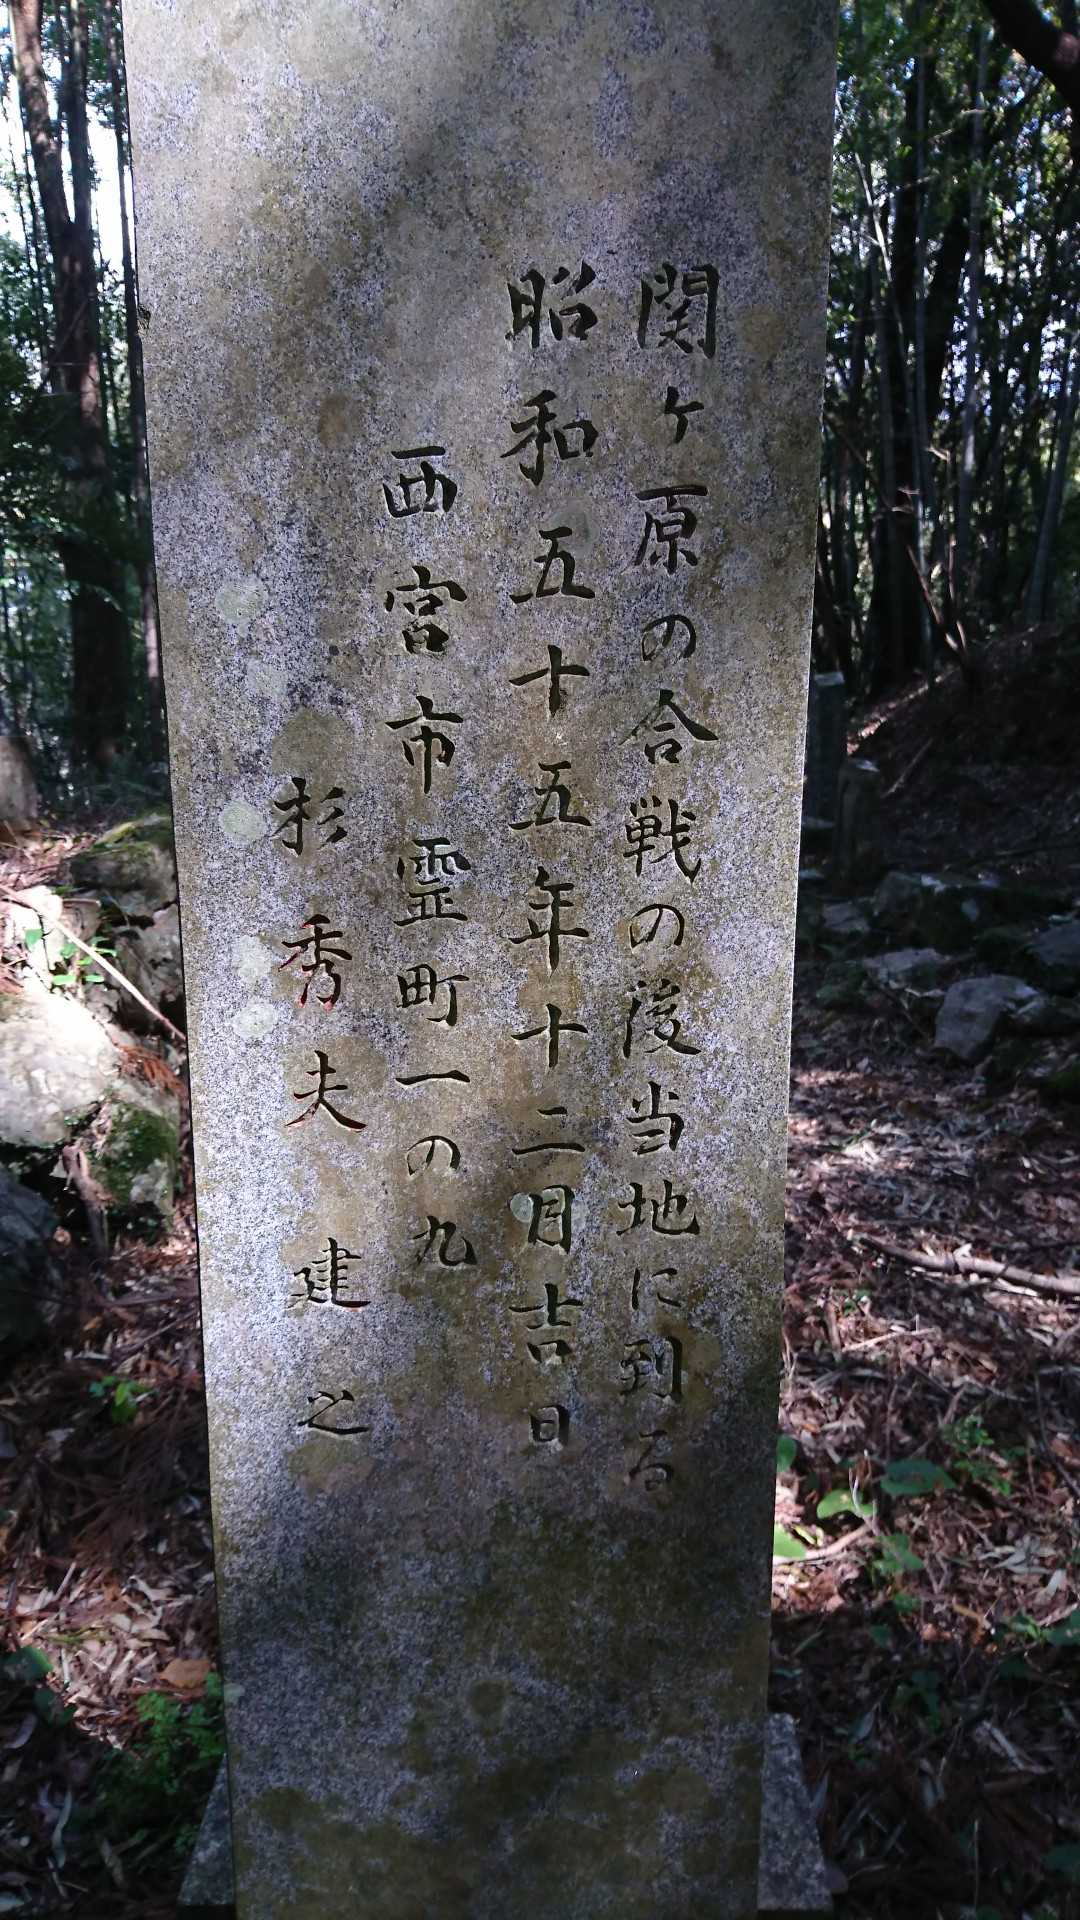 関ヶ原の合戦の後当地に到る
昭和五十五年十二月吉日
西宮市霊町一の九
杉秀夫建之